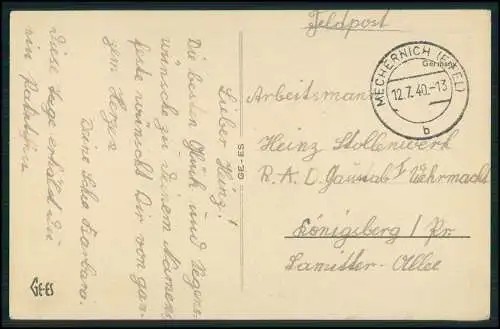 Feldpost
MECHERNICH (EIFEL)
12.7.40.-13
b
Arbeitsmann
Heinz Stollenwerk
R.A.D. Gaustab f. Wehrmacht
Königsberg / Pr
Lamitter-Allee
Lieber Heinz!
Die besten Glück und Segens-
wünsche zu Deinem Namens-
feste wünscht Dir von gan-
zem Herzen
Deine Schw. Barbara.
Diese Tage erhälst Du
ein Paketchen
GE-ES
GE-ES